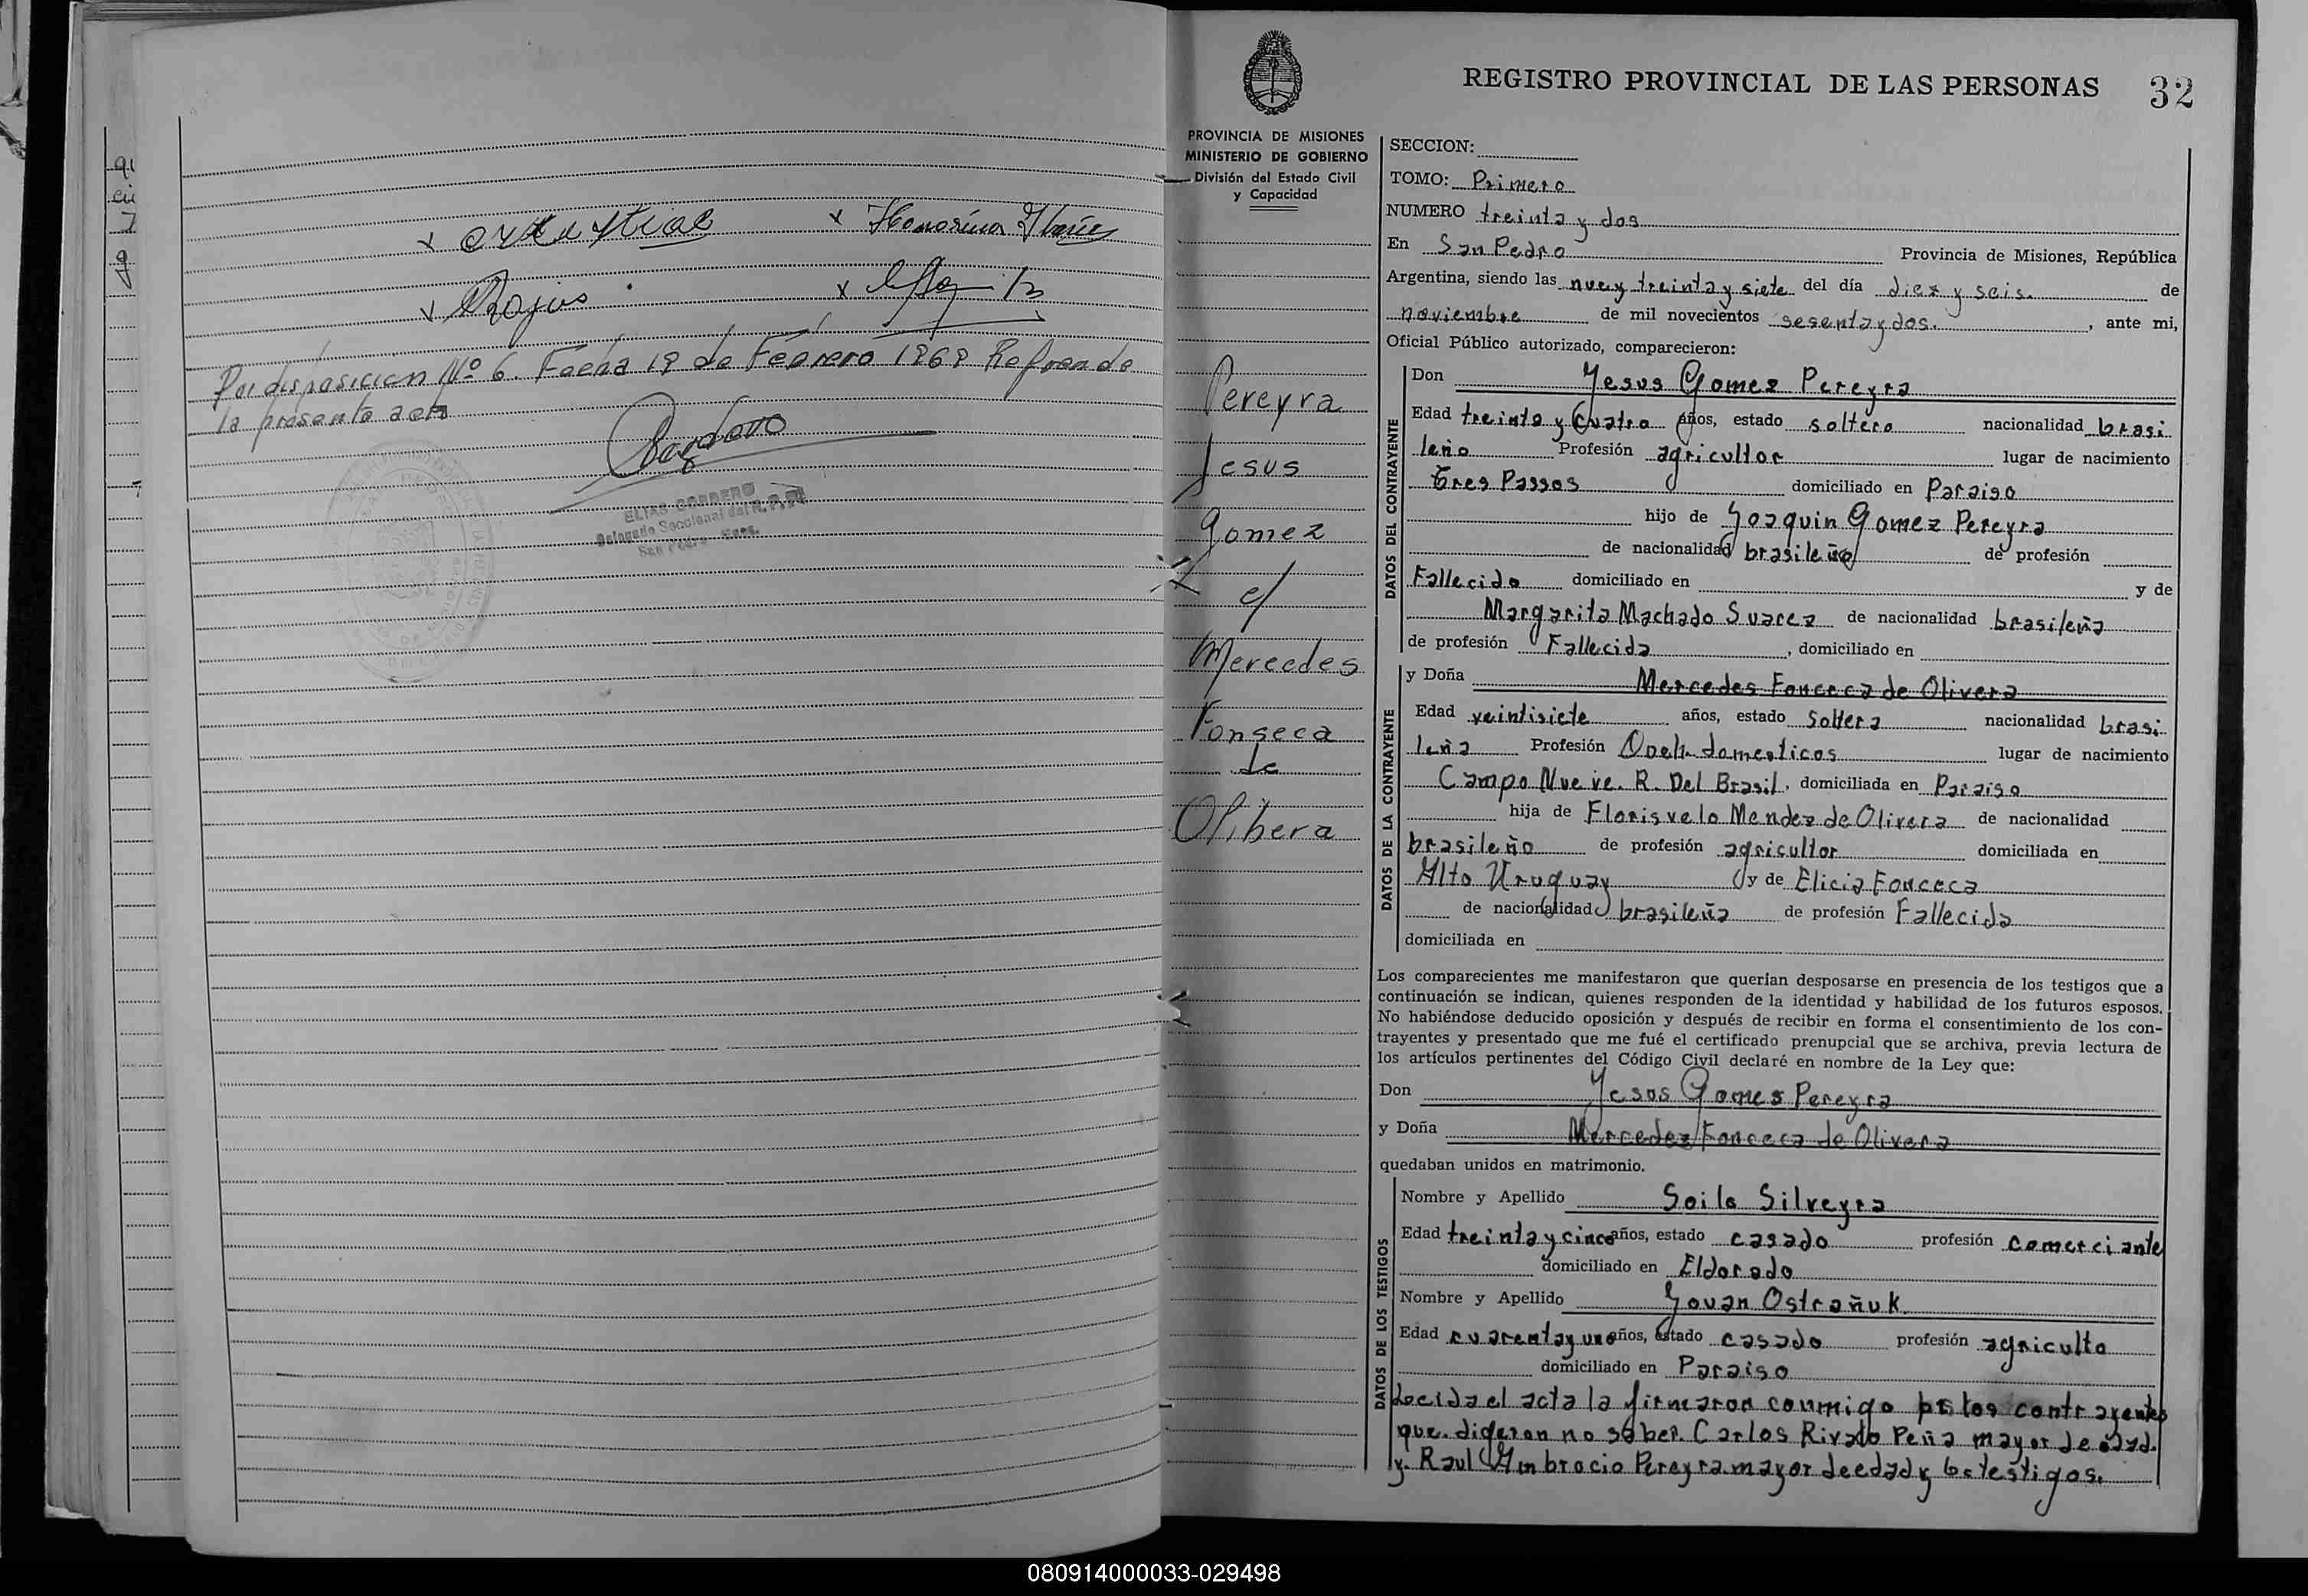 x Honorina
x Rojas x
Por disposicion Nº 6. Fecha 19 de Febrero 1969 Refrendo
la presente acta
ELIAS CORRERO
Delegado Seccional del R. P. P.
San Pedro Mnes.
PROVINCIA DE MISIONES
MINISTERIO DE GOBIERNO
División del Estado Civil
y Capacidad
Pereyra
Jesus
Gomez
c/
Mercedes
Fonseca
de
Olibera
REGISTRO PROVINCIAL DE LAS PERSONAS 32
SECCION:
TOMO: Primero
NUMERO treinta y dos
En San Pedro Provincia de Misiones, República
Argentina, siendo las nue y treinta y siete del día diez y seis. de
noviembre de mil novecientos sesenta y dos. , ante mi,
Oficial Público autorizado, comparecieron:
DATOS DEL CONTRAYENTE
Don Yesus Gomez Pereyra
Edad treinta y Cuatro años, estado soltero nacionalidad brasi
leño Profesión agricultor lugar de nacimiento
Tres Passos domiciliado en Paraiso
hijo de Joaquin Gomez Pereyra
de nacionalidad brasileño de profesión
Fallecido domiciliado en y de
Margarita Machado Suarez de nacionalidad brasileña
de profesión Fallecida , domiciliado en
DATOS DE LA CONTRAYENTE
y Doña Mercedes Fonceca de Olivera
Edad veintisiete años, estado soltera nacionalidad brasi
leña Profesión Queh. domesticos lugar de nacimiento
Campo Nueve. R. Del Brasil, domiciliada en Paraiso
hija de Florisvelo Mendez de Olivera de nacionalidad
brasileño de profesión agricultor domiciliada en
Alto Uruguay y de Elicia Fonceca
de nacionalidad brasileña de profesión Fallecida
domiciliada en
Los comparecientes me manifestaron que querían desposarse en presencia de los testigos que a
continuación se indican, quienes responden de la identidad y habilidad de los futuros esposos.
No habiéndose deducido oposición y después de recibir en forma el consentimiento de los con-
trayentes y presentado que me fué el certificado prenupcial que se archiva, previa lectura de
los artículos pertinentes del Código Civil declaré en nombre de la Ley que:
Don Yesus Gomes Pereyra
y Doña Mercedez Fonceca de Olivera
quedaban unidos en matrimonio.
DATOS DE LOS TESTIGOS
Nombre y Apellido Soilo Silveyra
Edad treinta y cinco años, estado casado profesión comerciante
domiciliado en Eldorado
Nombre y Apellido Jovan Ostrañuk.
Edad cuarenta y uno años, estado casado profesión agriculto
domiciliado en Paraiso
Leeida el acta la firmaron conmigo los contrayentes
que digeron no saber. Carlos Rivato Peña mayor de edad.
y. Raul Ambrocio Pereyra mayor de edad y testigos.
080914000033-029498